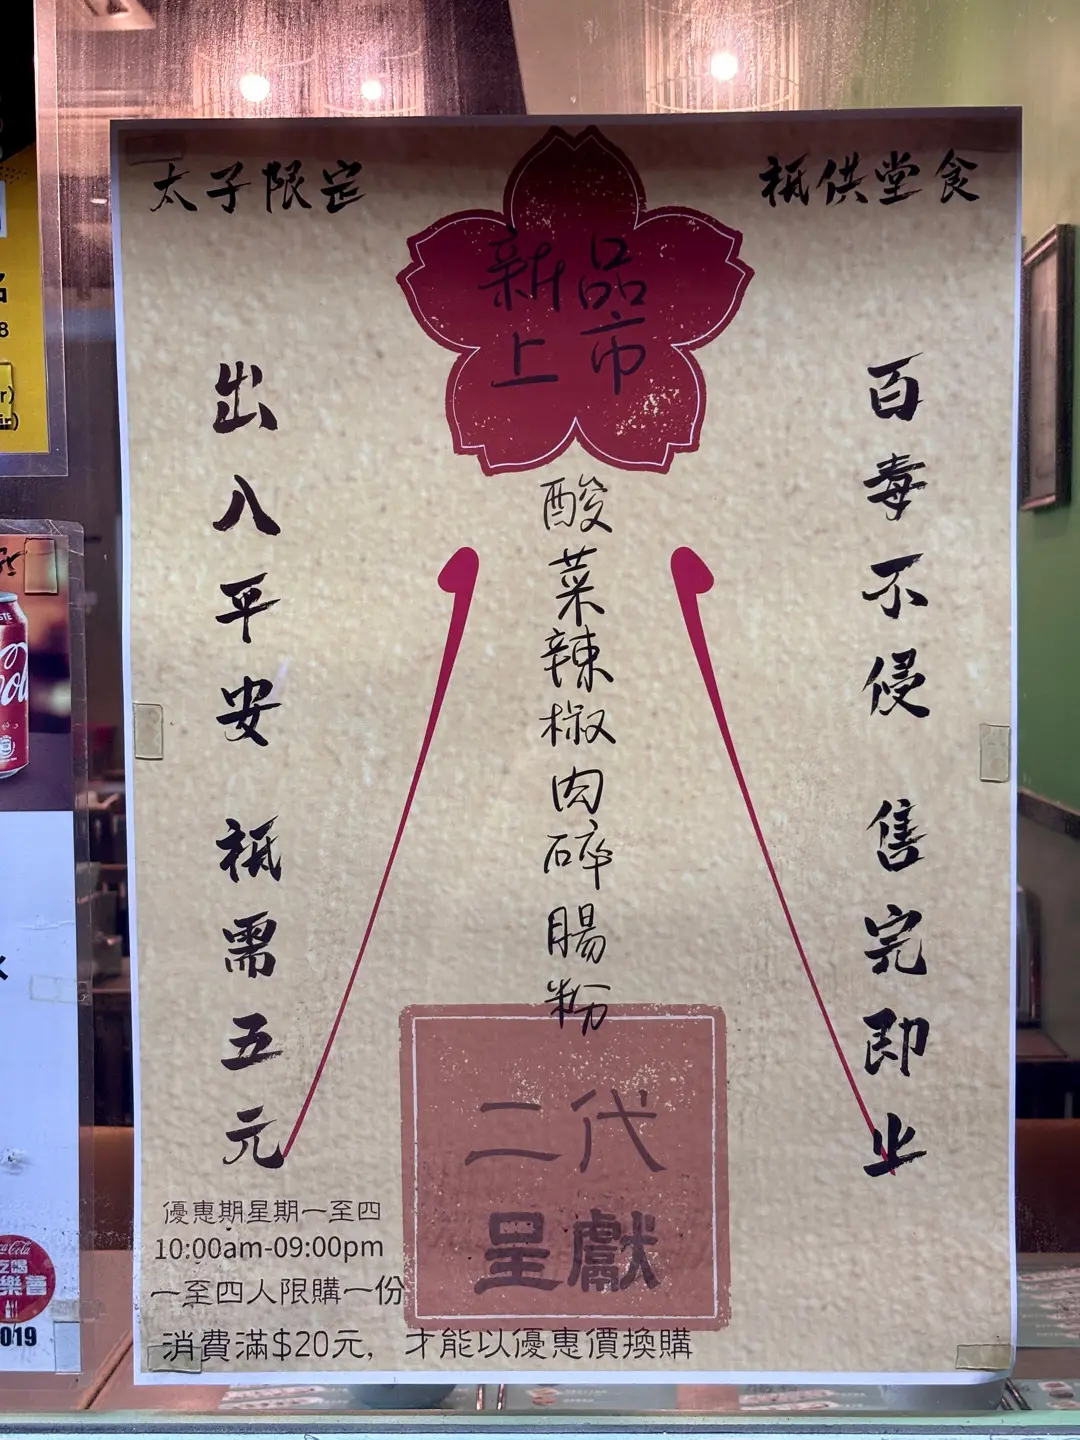 太子限定
祗供堂食
新品
上市
百毒不侵 售完即止
酸菜辣椒肉碎腸粉
出入平安 祗需五元
二代
呈獻
優惠期星期一至四
10:00am-09:00pm
一至四人限購一份
消費滿$20元，才能以優惠價換購
Coca-Cola
吃喝
樂薈
019